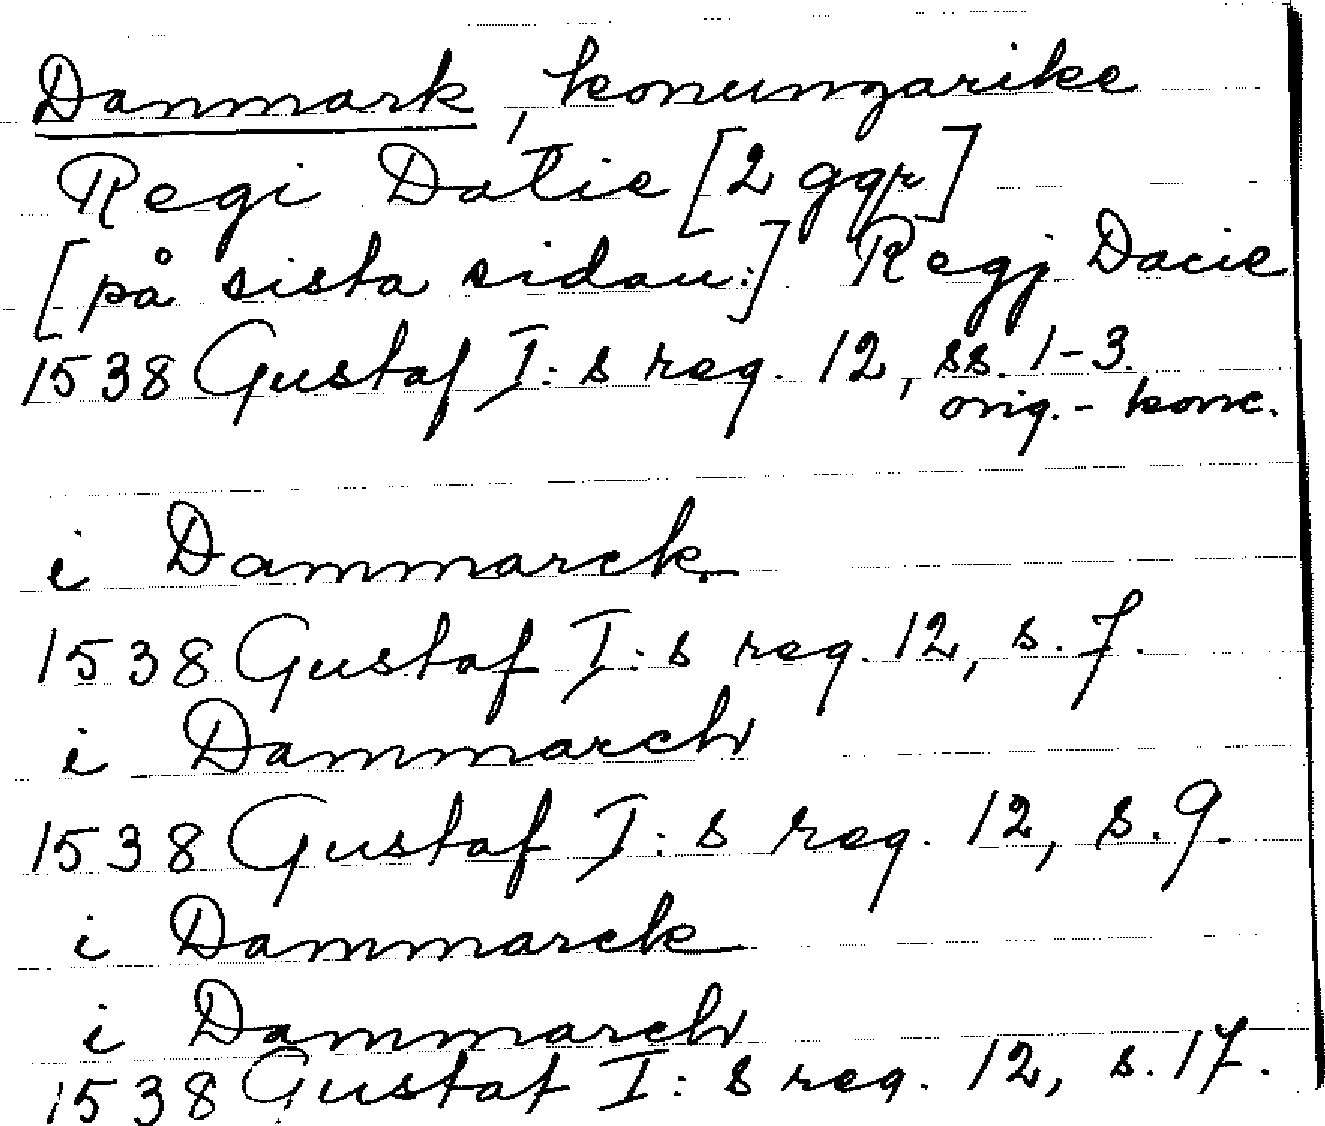 Danmark, konungarike
Regi Datie [2 ggr]
[på sista sidan:] Regj Dacie
1538 Gustaf I:s reg. 12, ss. 1-3.
orig.-konc.
i Dammarck
1538 Gustaf I:s reg. 12, s. 7.
i Dammarch
1538 Gustaf I:s reg. 12, s. 9.
i Dammarck
i Dammarch
1538 Gustaf I:s reg. 12, s. 17.